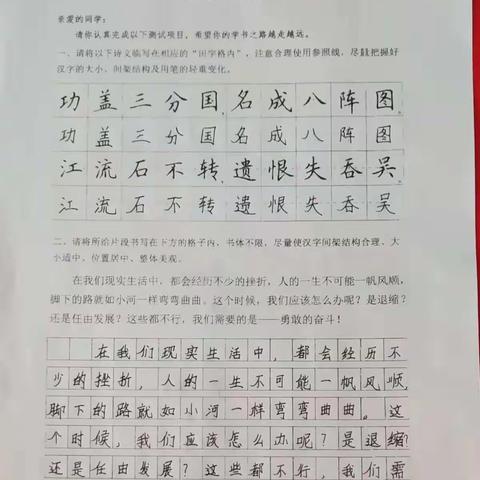 亲爱的同学：
请你认真完成以下测试项目，希望你的学书之路越走越远。
一、请将以下诗文临写在相应的“田字格内”，注意合理使用参照线，尽量把握好
汉字的大小、间架结构及用笔的轻重变化。
功盖三分国，名成八阵图。
功盖三分国名成八阵图
江流石不转，遗恨失吞吴。
江流石不转遗恨失吞吴
二、请将所给片段书写在下方的格子内，书体不限，尽量使汉字间架结构合理、大
小适中、位置居中、整体美观。
在我们现实生活中，都会经历不少的挫折，人的一生不可能一帆风顺，
脚下的路就如小河一样弯弯曲曲。这个时候，我们应该怎么办呢？是退缩？
还是任由发展？这些都不行，我们需要的是——勇敢的奋斗！
在我们现实生活中，都会经历不
少的挫折，人的一生不可能一帆风顺，
脚下的路就如小河一样弯弯曲曲。这
个时候，我们应该怎么办呢？是退缩？
还是任由发展？这些都不行，我们需